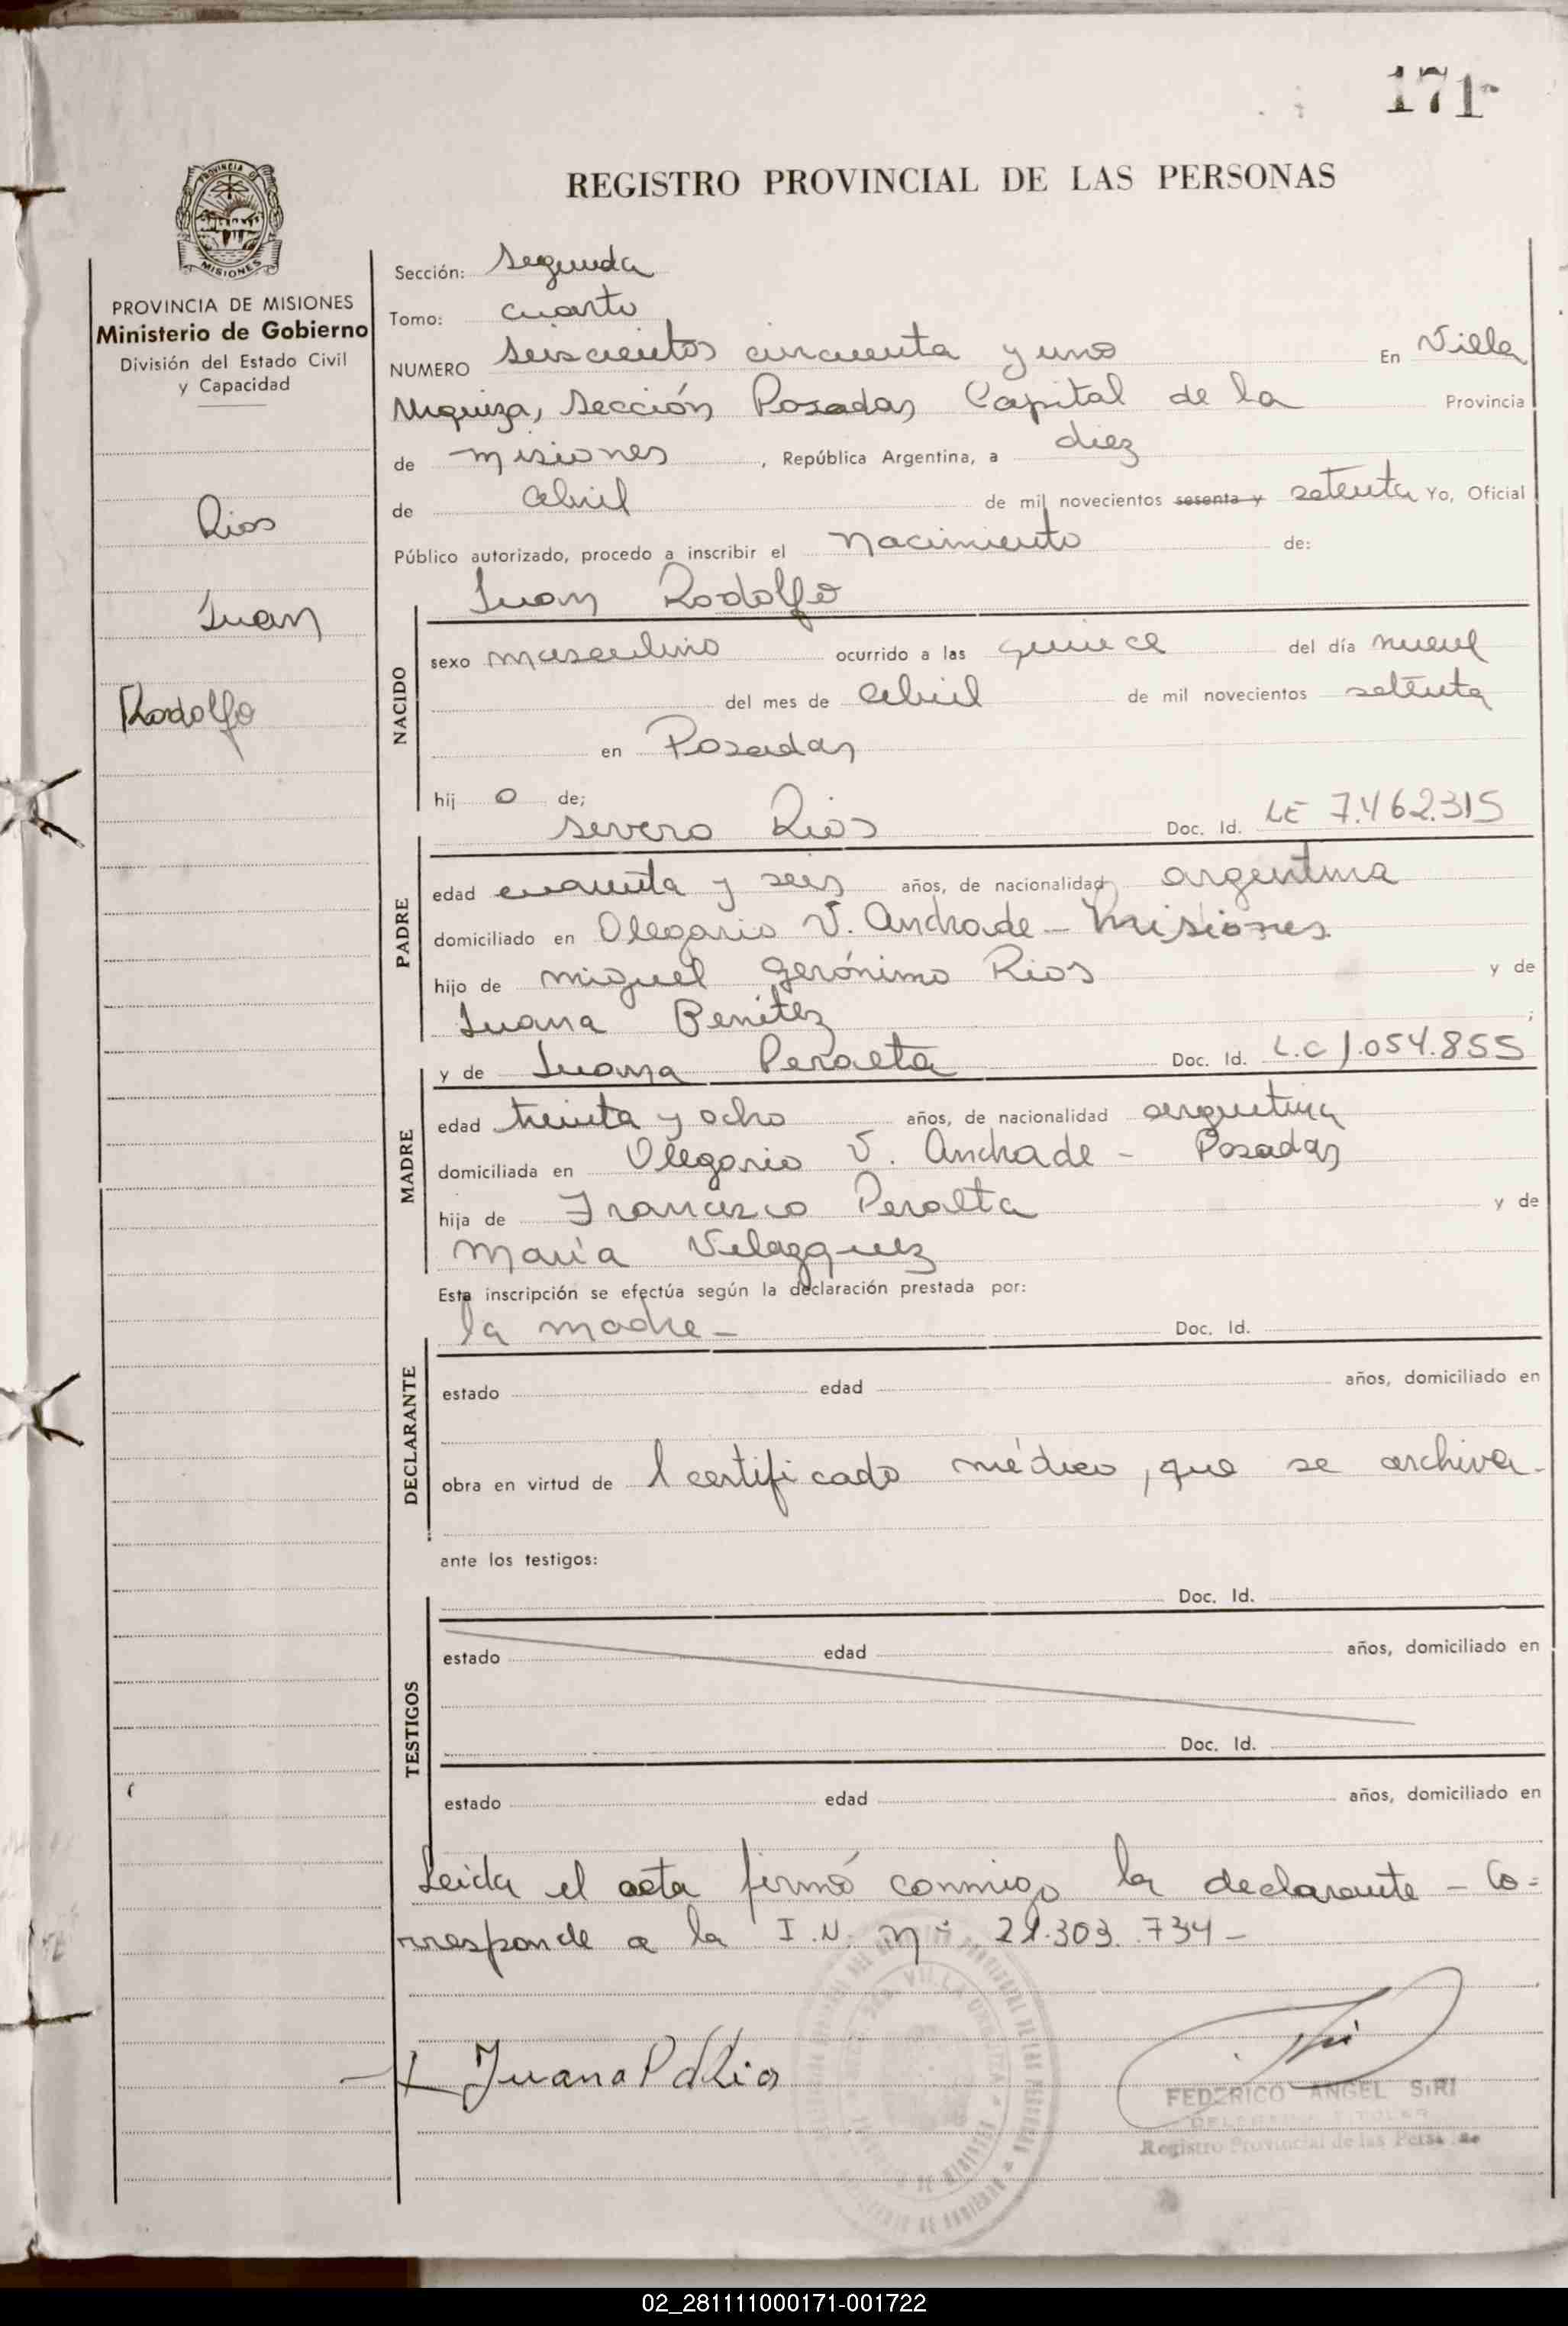 171
REGISTRO PROVINCIAL DE LAS PERSONAS
PROVINCIA DE
MISIONES
PROVINCIA DE MISIONES
Ministerio de Gobierno
División del Estado Civil
y Capacidad
Rios
Juan
Rodolfo
Sección: Segunda
Tomo: cuarto
NUMERO seiscientos cincuenta y uno En Villa
Urquiza, Sección Posadas Capital de la Provincia
de Misiones, República Argentina, a diez
de abril de mil novecientos sesenta y setenta Yo, Oficial
Público autorizado, procedo a inscribir el Nacimiento de:
Juan Rodolfo
NACIDO
sexo masculino ocurrido a las quince del día nueve
del mes de abril de mil novecientos setenta
en Posadas
hij o de;
Severo Rios Doc. Id. LE 7.462.315
PADRE
edad cuarenta y seis años, de nacionalidad argentina
domiciliado en Olegario V. Andrade - Misiones
hijo de Miguel Gerónimo Rios y de
Juana Benítez ;
y de Juana Peralta Doc. Id. L.C 1.054.855
MADRE
edad treinta y ocho años, de nacionalidad argentina
domiciliada en Olegario V. Andrade - Posadas
hija de Francisco Peralta y de
María Velazquez
Esta inscripción se efectúa según la declaración prestada por:
la madre - Doc. Id.
DECLARANTE
estado edad años, domiciliado en
obra en virtud de l certificado médico, que se archiva.
ante los testigos:
Doc. Id.
TESTIGOS
estado edad años, domiciliado en
Doc. Id.
estado edad años, domiciliado en
Leida el acta firmó conmigo la declarante - Co=
rresponde a la I.N. Nº 21.303.734-
Juana P d Rios
FEDERICO ANGEL SIRI
Registro Provincial de las
02_281111000171-001722